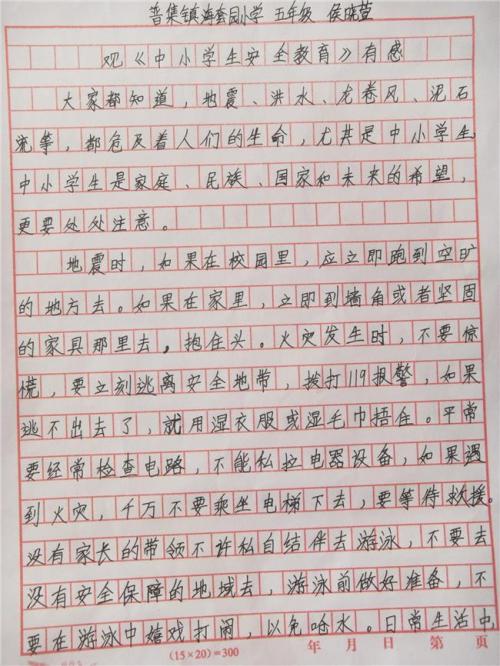 普集镇海套园小学 五年级 侯晓萱
观《中小学生安全教育》有感
大家都知道，地震、洪水、龙卷风、泥石
流等，都危及着人们的生命，尤其是中小学生
中小学生是家庭、民族、国家和未来的希望，
更要处处注意。
地震时，如果在校园里，应立即跑到空旷
的地方去。如果在家里，立即到墙角或者坚固
的家具那里去。抱住头。火灾发生时，不要惊
慌，要立刻逃离安全地带，拨打119报警，如果
逃不出去了，就用湿衣服或湿毛巾捂住。平常
要经常检查电路，不能私拉电器设备，如果遇
到火灾，千万不要乘坐电梯下去，要等待救援。
没有家长的带领不许私自结伴去游泳，不要去
没有安全保障的地域去，游泳前做好准备，不
要在游泳中嬉戏打闹，以免呛水。日常生活中
(15×20)=300 年 月 日 第 页